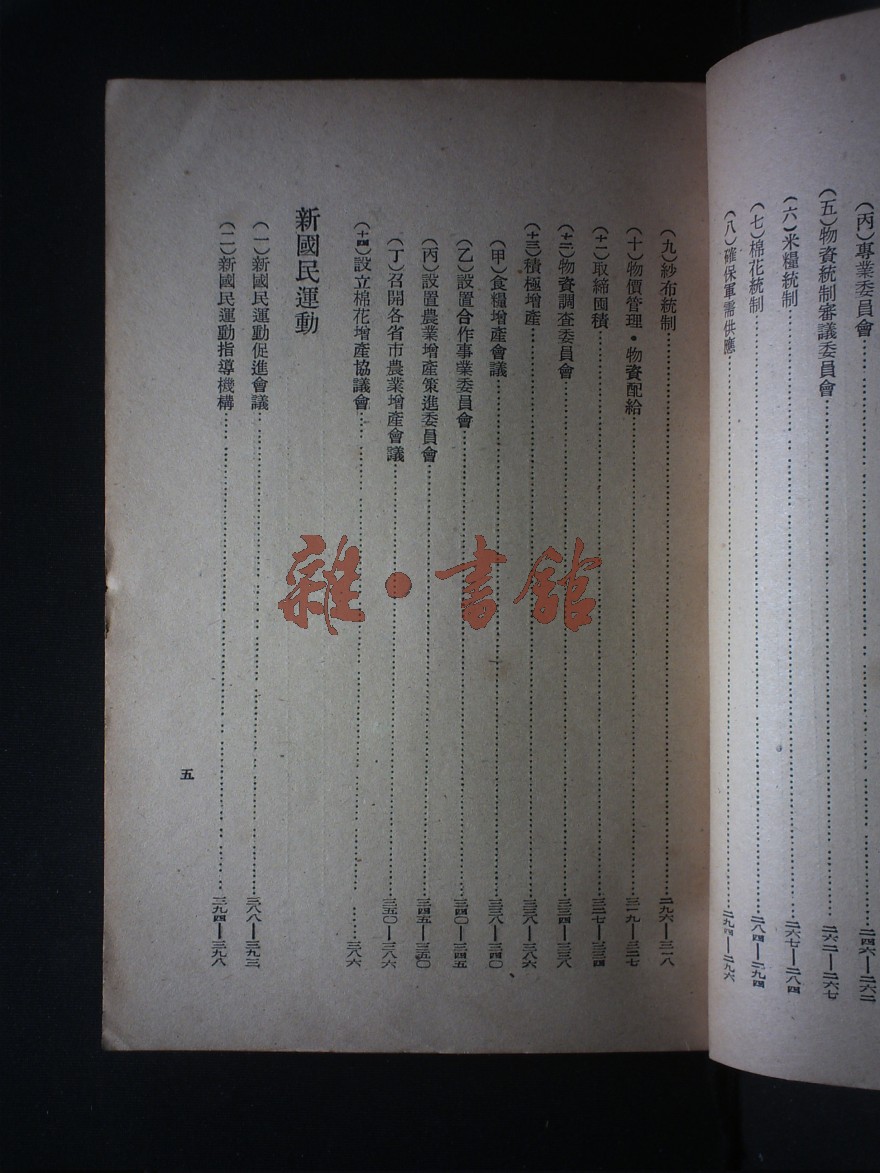 (丙)專業委員會……二四六—二六二
(五)物資統制審議委員會……二六二—二六七
(六)米糧統制……二六七—二八四
(七)棉花統制……二八四—二九四
(八)確保軍需供應……二九四—二九六
(九)紗布統制……二九六—三一八
(十)物價管理·物資配給……三一九—三二七
(十一)取締囤積……三二七—三三四
(十二)物資調查委員會……三三四—三三八
(十三)積極增產……三三八—三八六
(甲)食糧增產會議……三三八—三四〇
(乙)設置合作事業委員會……三四〇—三四五
(丙)設置農業增產策進委員會……三四五—三五〇
(丁)召開各省市農業增產會議……三五〇—三八六
(十四)設立棉花增產協議會……三八六
新國民運動
(一)新國民運動促進會議……三八八—三九三
(二)新國民運動指導機構……三九四—三九八
五
雜·書館